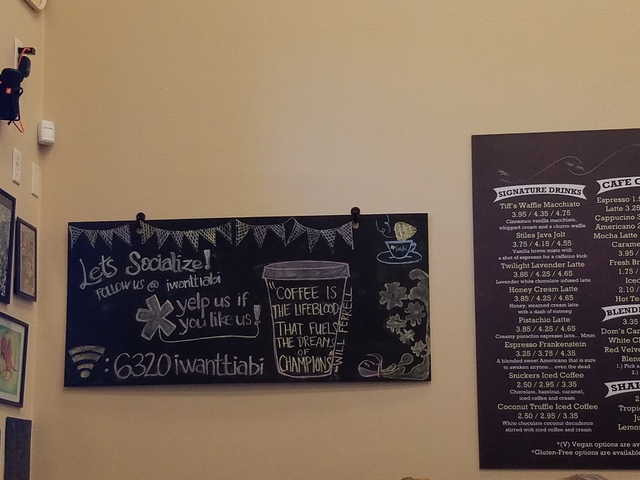 Let's Socialize!
FOLLOW US @ iwanttiabi
yelp us if
you like us!
: 6320iwanttiabi
"COFFEE IS
THE LIFEBLOOD
THAT FUELS
THE DREAMS
OF
CHAMPIONS"
-WILL FERRELL
SIGNATURE DRINKS
Tiff's Waffle Macchiato
3.95 / 4.35 / 4.75
Cinnamon vanilla macchiato,
whipped cream and a churro waffle
Stiles Java Jolt
3.75 / 4.15 / 4.55
Vanilla breve mista with
a shot of espresso for a caffeine kick
Twilight Lavender Latte
3.85 / 4.25 / 4.65
Lavender white chocolate infused latte
Honey Cream Latte
3.85 / 4.25 / 4.65
Honey, steamed cream latte
with a dash of nutmeg
Pistachio Latte
3.85 / 4.25 / 4.65
Creamy pistachio espresso latte... Mmm
Espresso Frankenstein
3.25 / 3.75 / 4.35
A blended sweet Americano that is sure
to awaken anyone... even the dead
Snickers Iced Coffee
2.50 / 2.95 / 3.35
Chocolate, hazelnut, caramel,
iced coffee and cream
Coconut Truffle Iced Coffee
2.50 / 2.95 / 3.35
White chocolate coconut decadence
stirred with iced coffee and cream
CAFE C
Espresso 1.
Latte 3.25
Cappuccino 3
Americano 2
Mocha Latte
Carame
3.95 /
Fresh Br
1.75 /
Iced
2.10 /
Hot T
BLEND
3.35
Dom's Car
White C
Red Velve
Blen
1.) Pick a
2.)
SHA
2.
Tropic
Ju
Lemon
*(V) Vegan options are av
*Gluten-Free options are availabl